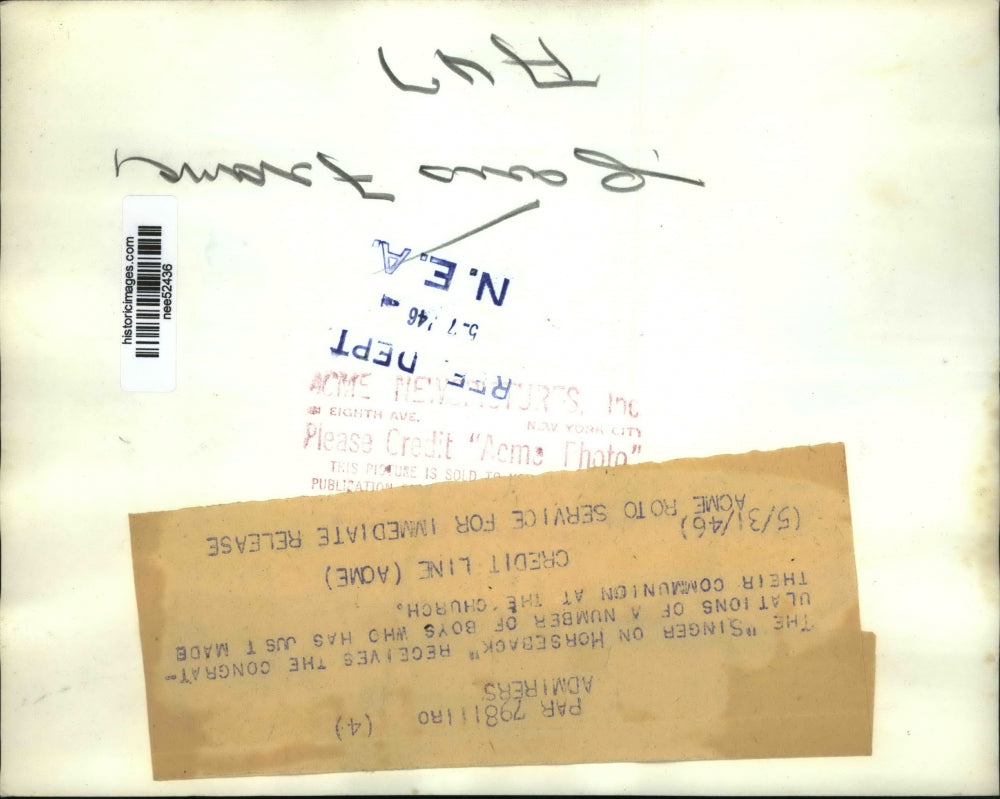 historicimages.com
nee52436
N.E.A.
5-7 '46
REF. DEPT
ACME NEWSPICTURES, Inc
EIGHTH AVE. NEW YORK CITY
Please Credit "Acme Photo"
THIS PICTURE IS SOLD TO
PUBLICATION
PAR 798111RO (4)
ADMIRERS
THE "SINGER ON HORSEBACK" RECEIVES THE CONGRAT-
ULATIONS OF A NUMBER OF BOYS WHO HAS JUST MADE
THEIR COMMUNION AT THE CHURCH.
CREDIT LINE (ACME)
ACME ROTO SERVICE FOR IMMEDIATE RELEASE
(5/3/46)